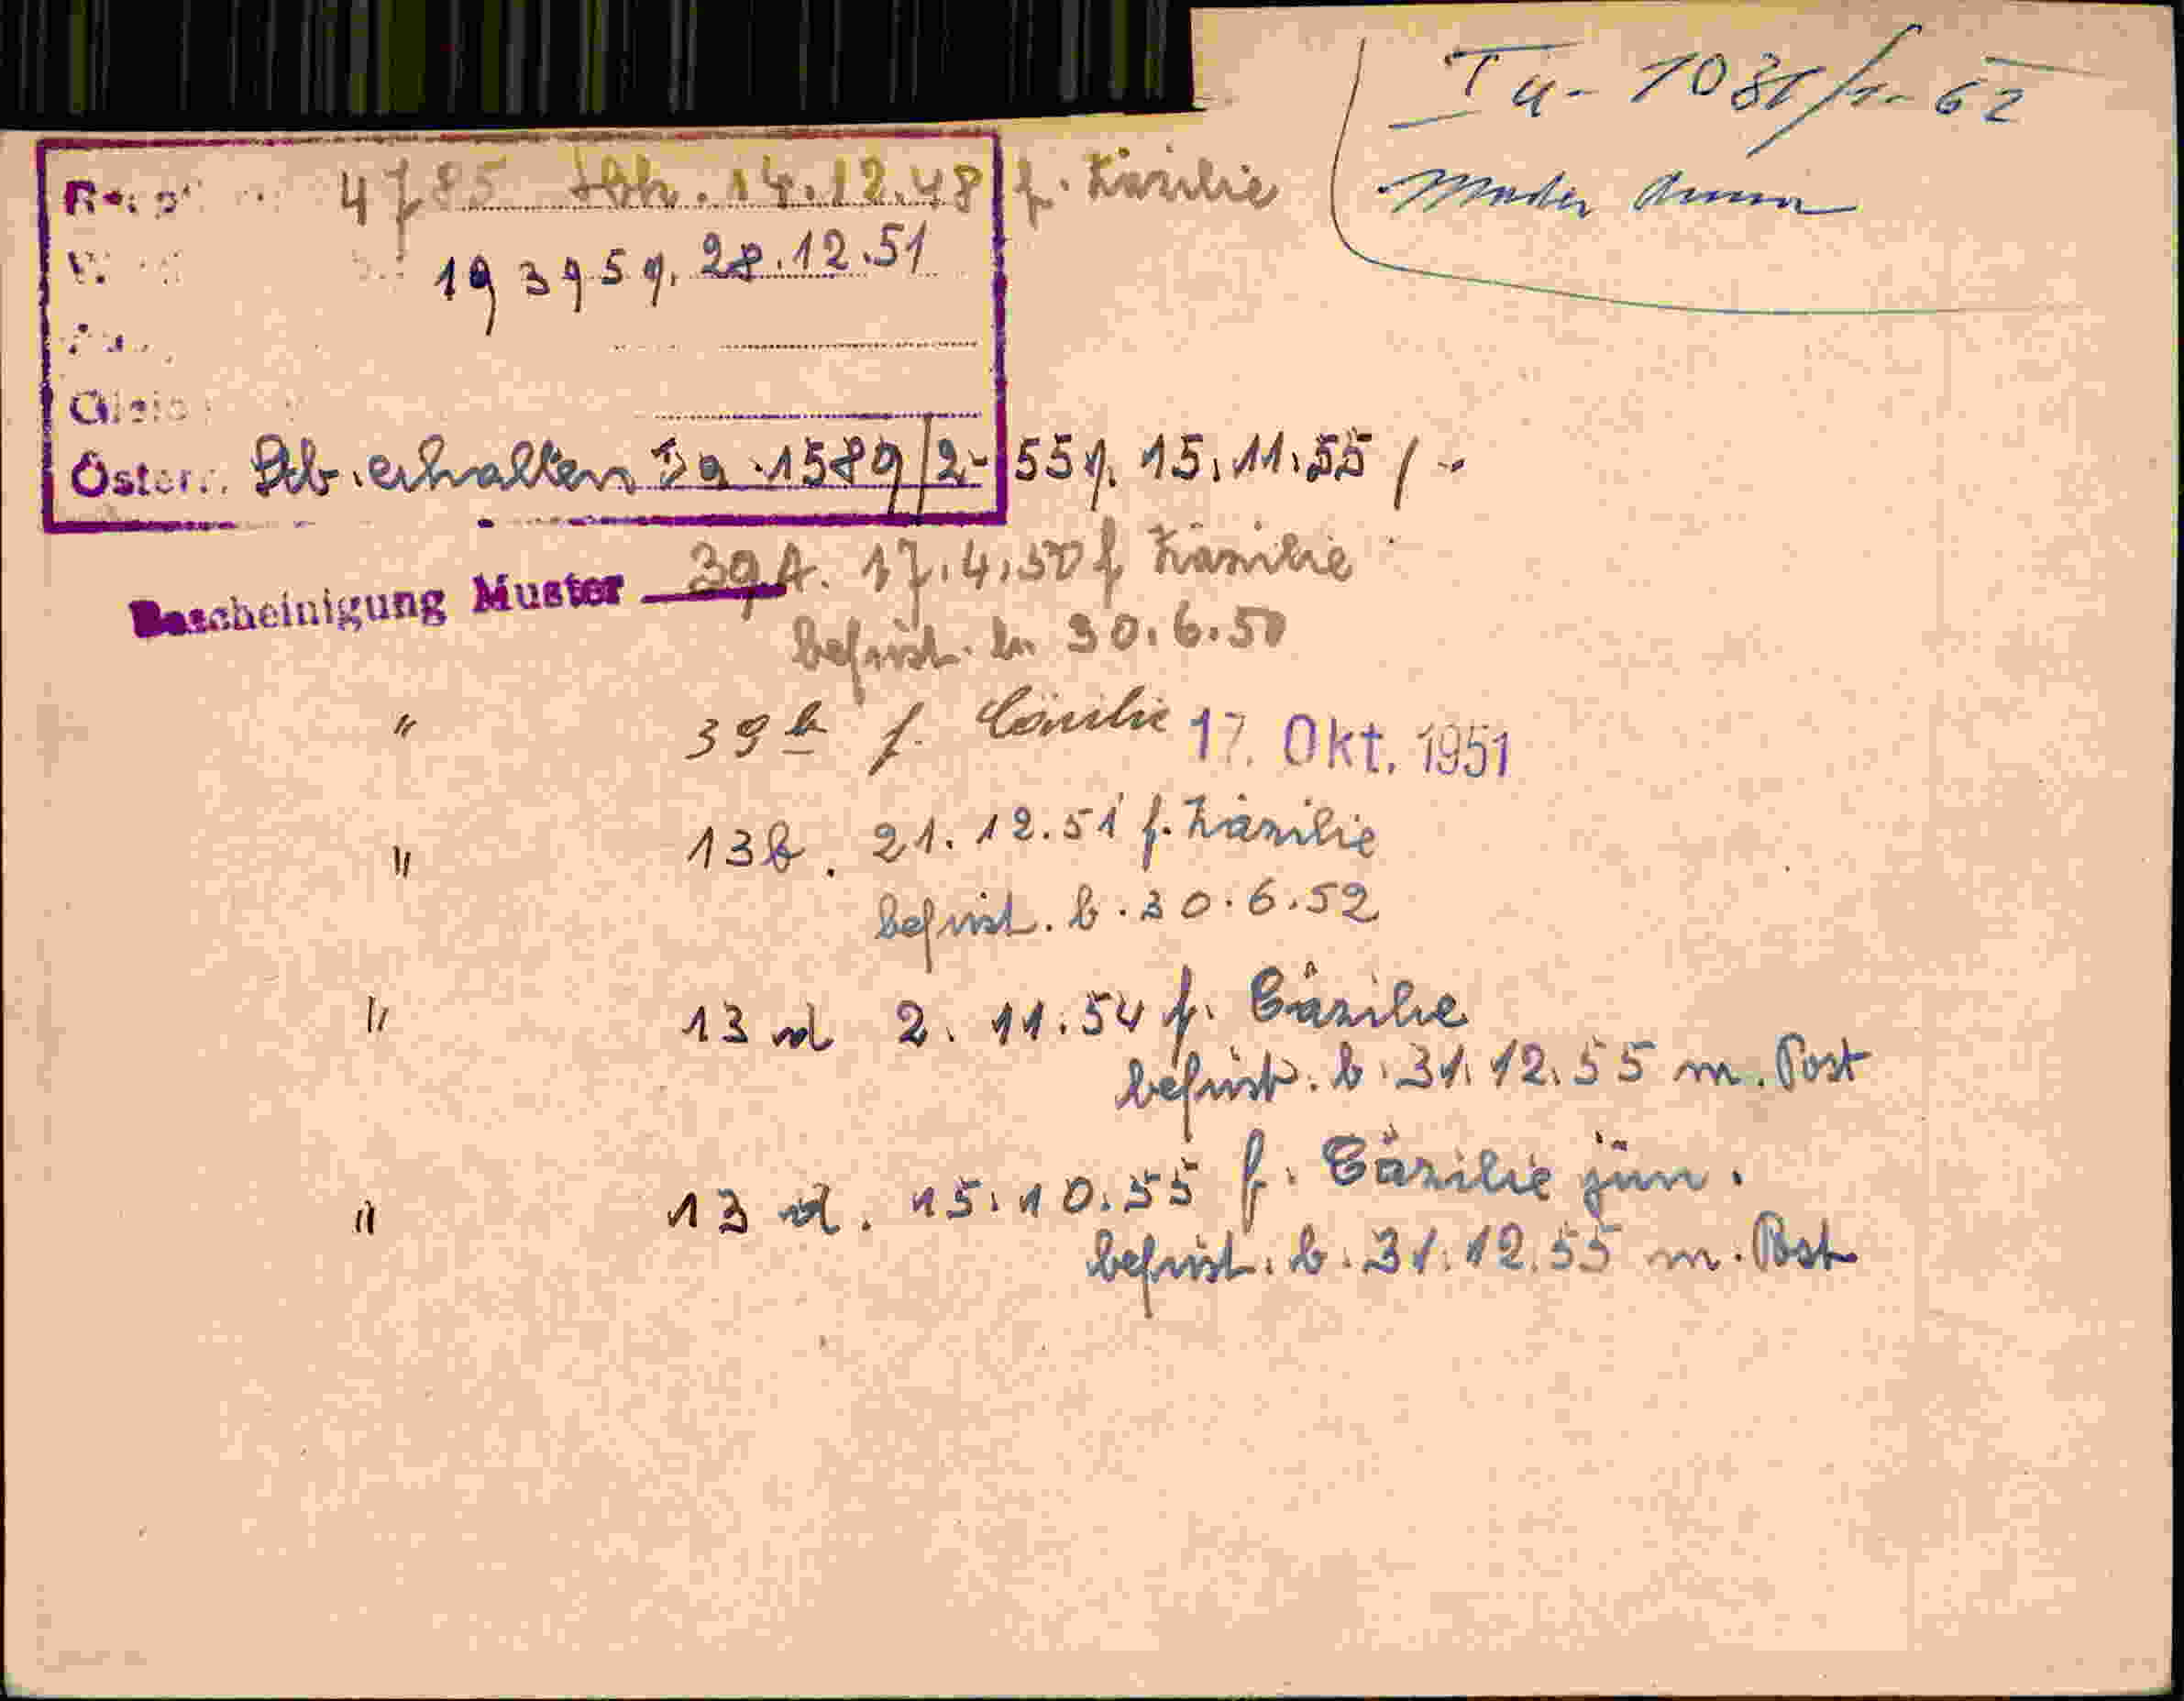 I a - 1031/1-62
Mader Anna
4785 Abh. 14.12.48 f. Käzilie
193959. 28.12.51
Österr. Stb. erhalten Ia-1589/2-55 v. 15.11.55 /-
Bescheinigung Muster 39A. 17.4.50 f Käzilie
befrist. b. 30.6.50
" 39b f. Cäcilie 17. Okt. 1951
" 13b. 21.12.51 f. Käzilie
befrist. b. 30.6.52
" 13 d 2. 11.54 f. Cäzilie
befrist. b. 31.12.55 m. Post
" 13 d. 15.10.55 f. Cäzilie jün.
befrist. b. 31.12.55 m. Post